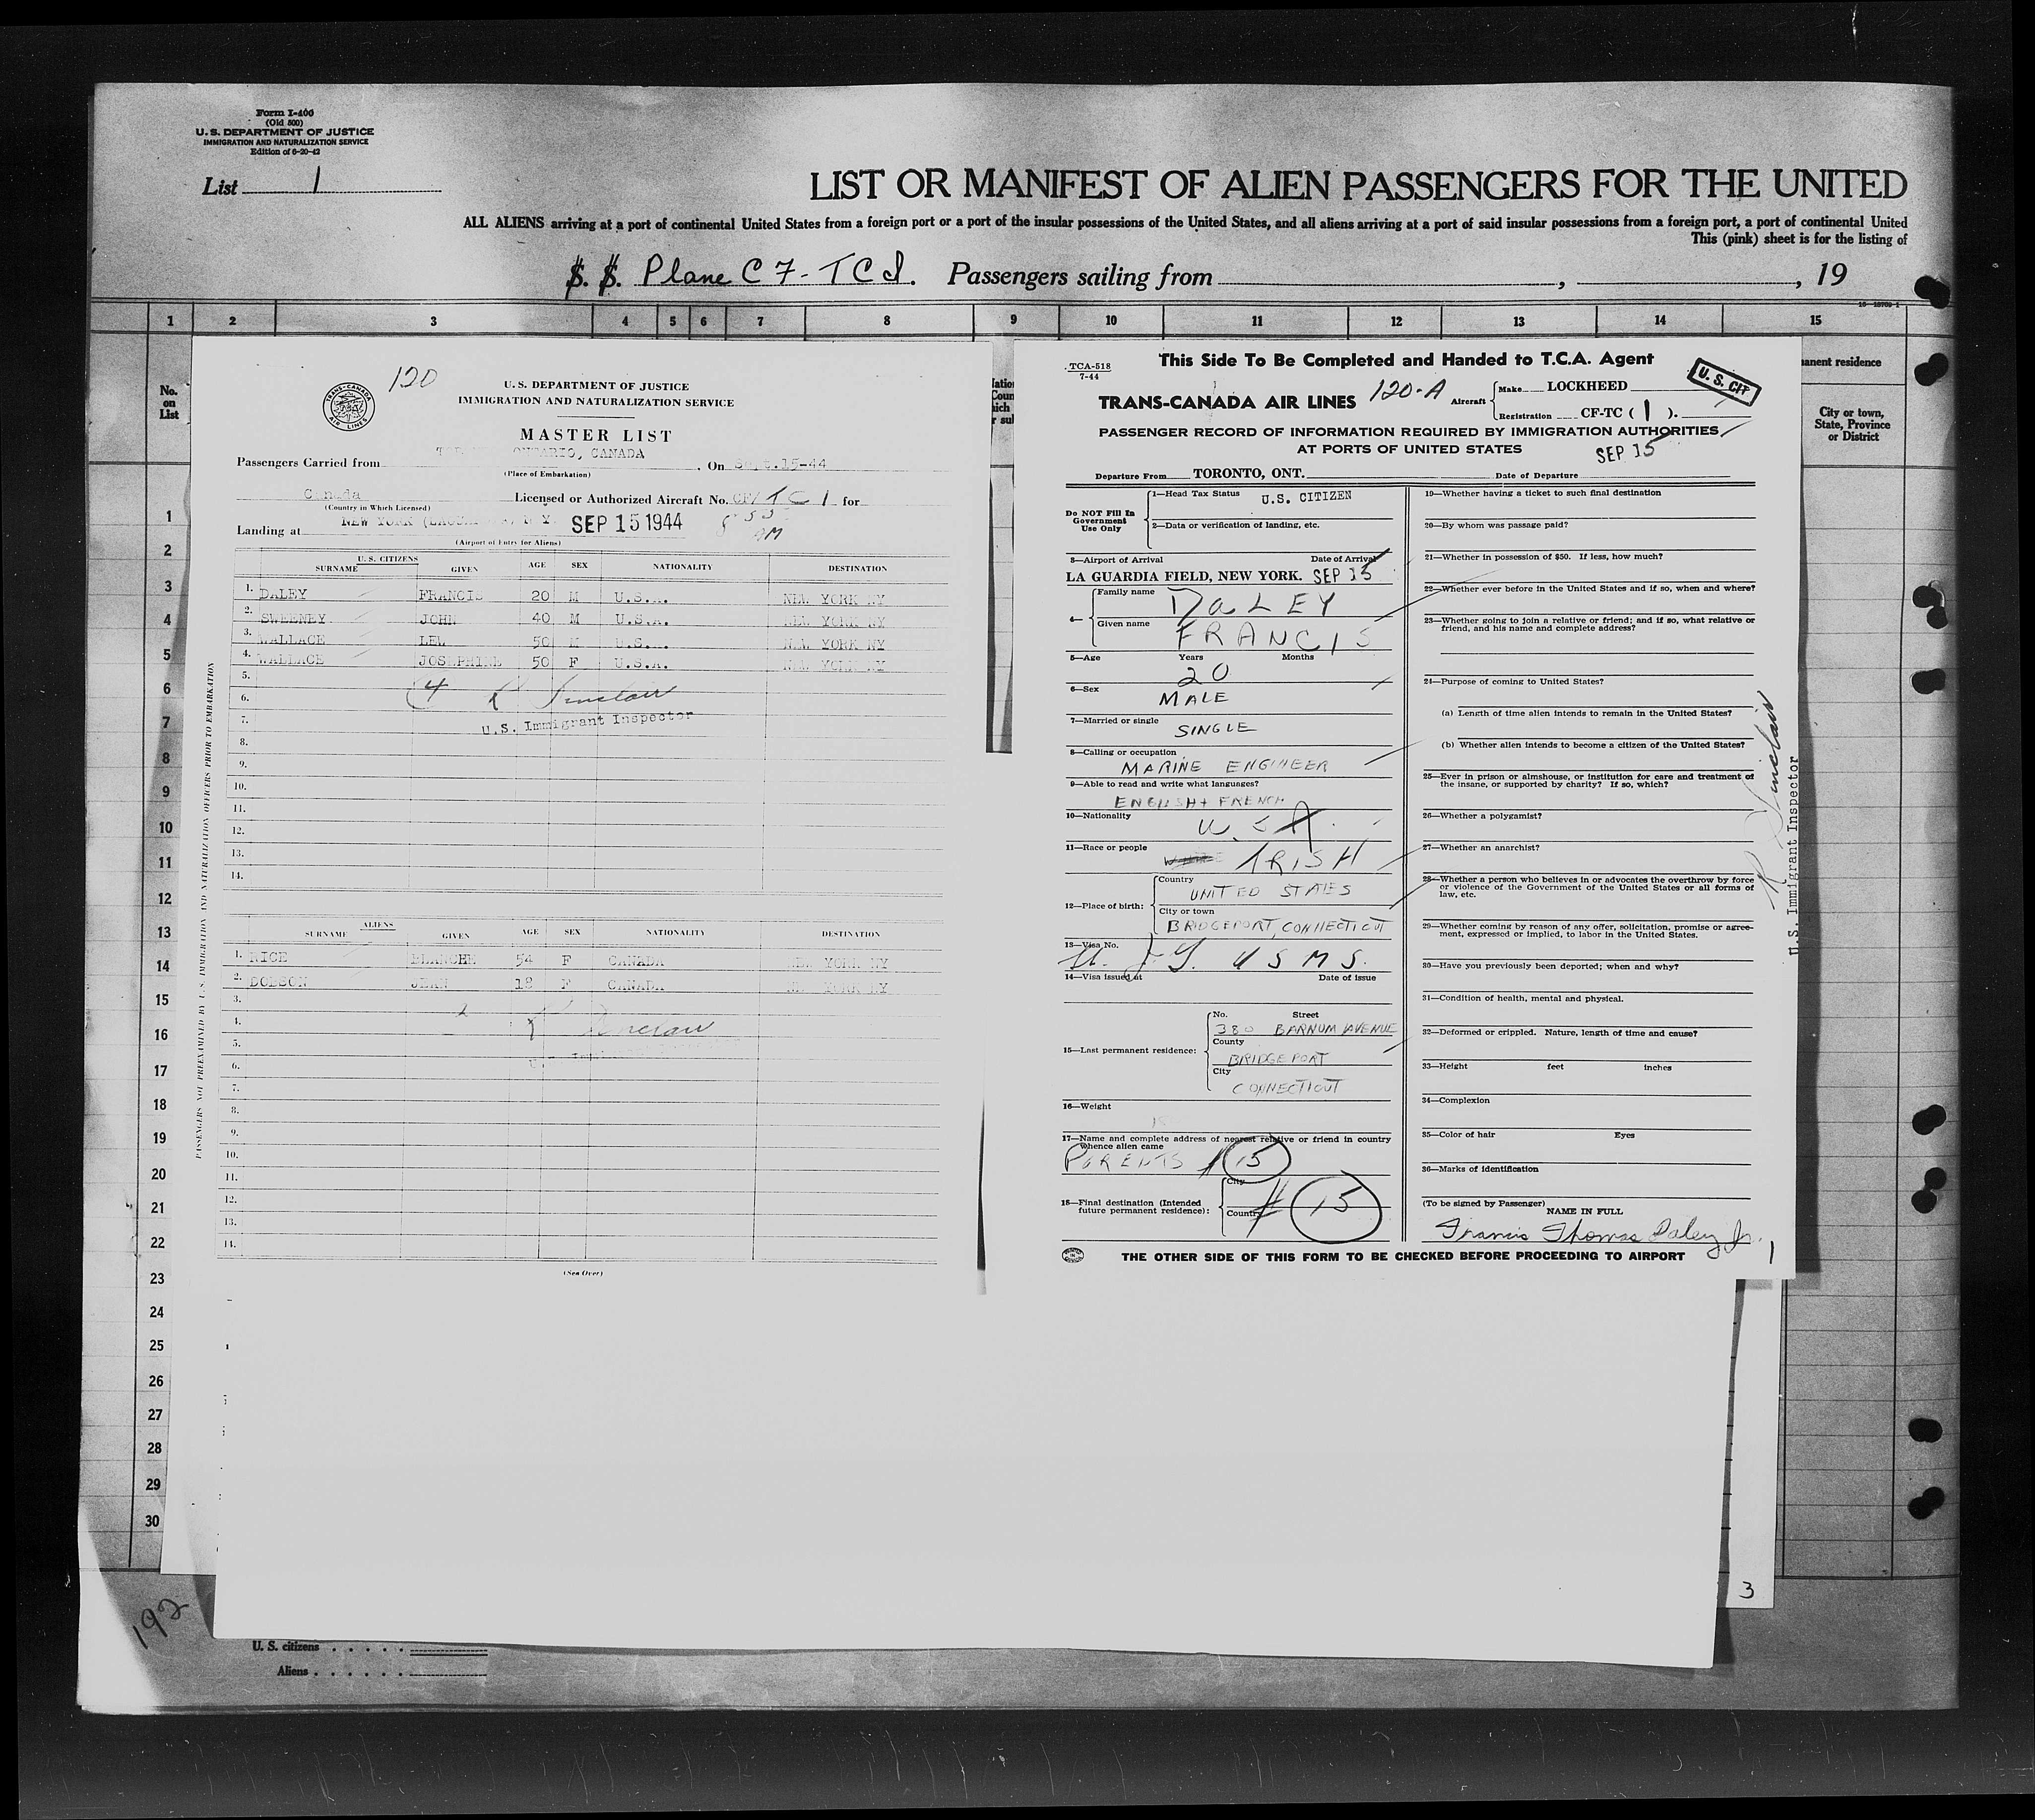 Form I-400
(Old 500)
U. S. DEPARTMENT OF JUSTICE
IMMIGRATION AND NATURALIZATION SERVICE
Edition of 6-20-42
List 1
LIST OR MANIFEST OF ALIEN PASSENGERS FOR THE UNITED
ALL ALIENS arriving at a port of continental United States from a foreign port or a port of the insular possessions of the United States, and all aliens arriving at a port of said insular possessions from a foreign port, a port of continental United
This (pink) sheet is for the listing of
S. S. Plane CF-TCI. Passengers sailing from , , 19
1 2 3 4 5 6 7 8 9 10 11 12 13 14 15
No.
on
List
anent residence
City or town,
State, Province
or District
1
2
3
4
5
6
7
8
9
10
11
12
13
14
15
16
17
18
19
20
21
22
23
24
25
26
27
28
29
30
TRANS-CANADA
AIR LINES
120
U. S. DEPARTMENT OF JUSTICE
IMMIGRATION AND NATURALIZATION SERVICE
MASTER LIST
Passengers Carried from ONTARIO, CANADA, On Sept.15-44
(Place of Embarkation)
Canada Licensed or Authorized Aircraft No. CF/TC 1 for
(Country in Which Licensed)
Landing at NEW YORK N Y. SEP 15 1944 8 53 AM
(Airport of Entry for Aliens)
U. S. CITIZENS
SURNAME GIVEN AGE SEX NATIONALITY DESTINATION
1. DALEY FRANCIS 20 M U.S.A. NEW YORK NY
2. SWEENEY JOHN 40 M U.S.A. NEW YORK NY
3. WALLACE LEW 50 M U.S.A. NEW YORK NY
4. WALLACE JOSEPHINE 50 F U.S.A. NEW YORK NY
5.
6. 4 R Sinclair
7. U.S. Immigrant Inspector
8.
9.
10.
11.
12.
13.
14.
ALIENS
SURNAME GIVEN AGE SEX NATIONALITY DESTINATION
1. RICE BLANCHE 54 F CANADA NEW YORK NY
2. DODSON JEAN 18 F CANADA NEW YORK NY
3.
4. 2 R Sinclair
5.
6.
7.
8.
9.
10.
11.
12.
13.
14.
(See Over)
PASSENGERS NOT PREEXAMINED BY U.S. IMMIGRATION AND NATURALIZATION OFFICERS PRIOR TO EMBARKATION
TCA-518
7-44
This Side To Be Completed and Handed to T.C.A. Agent
U. S. CIT
TRANS-CANADA AIR LINES 120-A Aircraft Make LOCKHEED
Registration CF-TC ( 1 ).
PASSENGER RECORD OF INFORMATION REQUIRED BY IMMIGRATION AUTHORITIES
AT PORTS OF UNITED STATES SEP 15
Departure From TORONTO, ONT. Date of Departure
Do NOT Fill In
Government
Use Only
1—Head Tax Status U.S. CITIZEN
2—Data or verification of landing, etc.
3—Airport of Arrival Date of Arrival
LA GUARDIA FIELD, NEW YORK. SEP 15
4— Family name DALEY
Given name FRANCIS
5—Age Years Months
20
6—Sex
MALE
7—Married or single
SINGLE
8—Calling or occupation
MARINE ENGINEER
9—Able to read and write what languages?
ENGLISH + FRENCH
10—Nationality
U.S.A.
11—Race or people
IRISH
12—Place of birth:
Country
UNITED STATES
City or town
BRIDGEPORT, CONNECTICUT
13—Visa No.
U S M S.
14—Visa issued at Date of issue
15—Last permanent residence:
No. Street
380 BARNUM AVENUE
County
BRIDGEPORT
City
CONNECTICUT
16—Weight
17—Name and complete address of nearest relative or friend in country
whence alien came
PARENTS # 15
18—Final destination (Intended
future permanent residence):
City
Country
# 15
19—Whether having a ticket to such final destination
20—By whom was passage paid?
21—Whether in possession of $50. If less, how much?
22—Whether ever before in the United States and if so, when and where?
23—Whether going to join a relative or friend; and if so, what relative or
friend, and his name and complete address?
24—Purpose of coming to United States?
(a) Length of time alien intends to remain in the United States?
(b) Whether alien intends to become a citizen of the United States?
25—Ever in prison or almshouse, or institution for care and treatment of
the insane, or supported by charity? If so, which?
26—Whether a polygamist?
27—Whether an anarchist?
28—Whether a person who believes in or advocates the overthrow by force
or violence of the Government of the United States or all forms of
law, etc.
29—Whether coming by reason of any offer, solicitation, promise or agree-
ment, expressed or implied, to labor in the United States.
30—Have you previously been deported; when and why?
31—Condition of health, mental and physical.
32—Deformed or crippled. Nature, length of time and cause?
33—Height feet inches
34—Complexion
35—Color of hair Eyes
36—Marks of identification
(To be signed by Passenger)
NAME IN FULL
Francis Thomas Daley Jr.
THE OTHER SIDE OF THIS FORM TO BE CHECKED BEFORE PROCEEDING TO AIRPORT
1
R Sinclair
U.S. Immigrant Inspector
3
192
U. S. citizens
Aliens